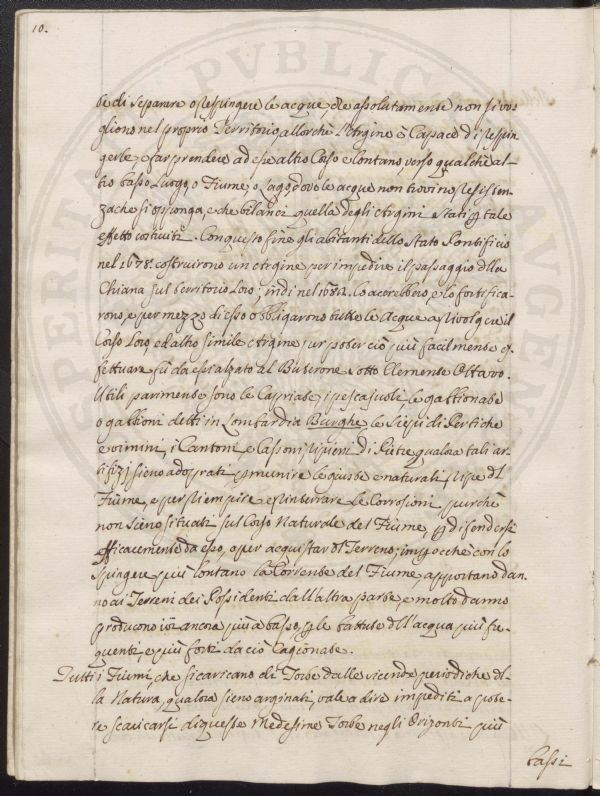 10.
be di separare o respingere le acque, che assolutamente non si vo-
gliono nel proprio Territorio allorche l'Argine è Capace di respin-
gerle, e far prendere ad esse altro Corso e lontano, verso qualche al-
tro basso Luogo, o Fiume, o Lago, dove le acque non trovino resisten-
za che si opponga, e che bilanci quella degli Argini stati per tale
effetto costruiti. Con questo fine gli abitanti dello Stato Pontificio
nel 1678. costruirono un Argine per impedire il passaggio dlla
Chiana sul territorio Loro; indi nel 1682. lo accrebbero, e lo fortifica-
rono, e per mezzo di esso obbligarono tutte le Acque a rivolgere il
Corso Loro, ed altro simile Argine, per poter ciò più facilmente ef-
fettuare fù da essi alzato al Buterone sotto Clemente Ottavo.
Utili parimente sono le Capriate, i pescajuoli, le gabbionate
o gabbioni detti in Lombardia Burghe, le Siepi di Pertiche
e vimini, i Cantoni, e Cassoni ripieni di Pietre qualora tali ar-
tifizj sieno adoprati per munire le giuste e naturali ripe dl
Fiume, e per riempire e rinterrare le Corrosioni, purchè
non sieno situati sul Corso Naturale del Fiume, per difendersi
efficacemente da esso, o per acquistar dl Terreno, imperocche con lo
spingere più lontano la Corrente del Fiume, apportano dan-
no ai Terreni dei Possidenti dall'altra parte, e molto danno
producono ivi ancora più a basso, per le battute dll'acqua più fre-
quenti, e più forti da ciò Cagionate.
Tutti i Fiumi, che si caricano di Torbe dalle vicende periodiche dl-
la Natura, qualora sieno arginati, vale a dire impediti a pote-
re scaricarsi di queste Medesime Torbe negli Orizonti più
bassi